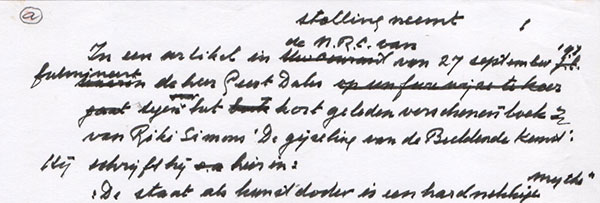 a
stelling neemt
de N.R.C. van
In een artikel in van 27 september '97
fulmineert de heer Geert Dales op een furieuze te keer
gaat tegen het kort geleden verschenen boek
van Riki Simons 'De gijzeling van de Beeldende Kunst'.
Hij schrijft hij o.a. hierin:
mythe"
"De staat als kunstdoder is een hardnekkige